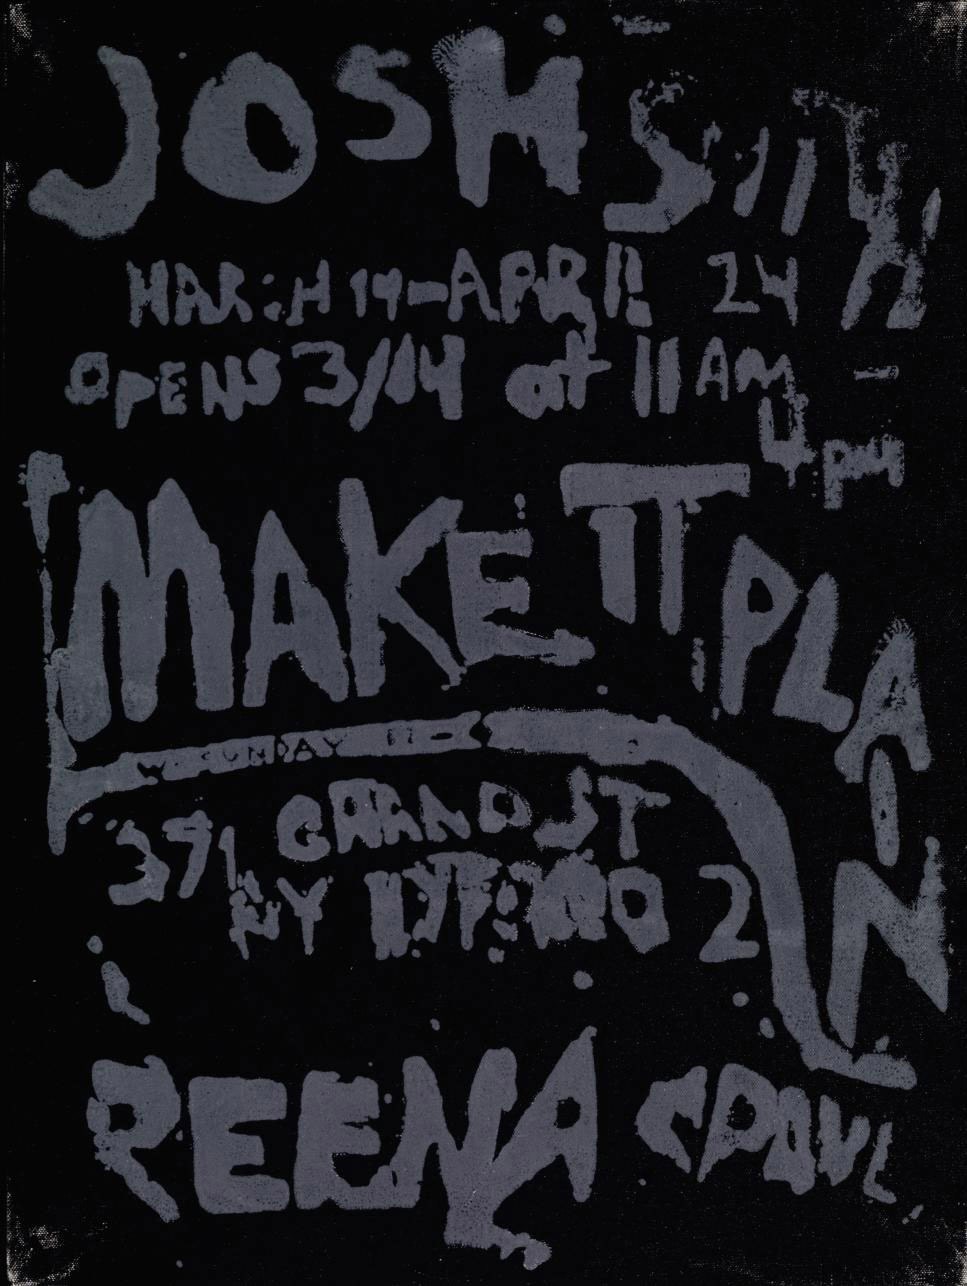 JOSH SMITH
MARCH 14-APRIL 24
OPENS 3/14 at 11AM -
4pm
MAKE IT PLAIN
SUNDAY
371 GRAND ST
NY NY 2
REENA SPAUL